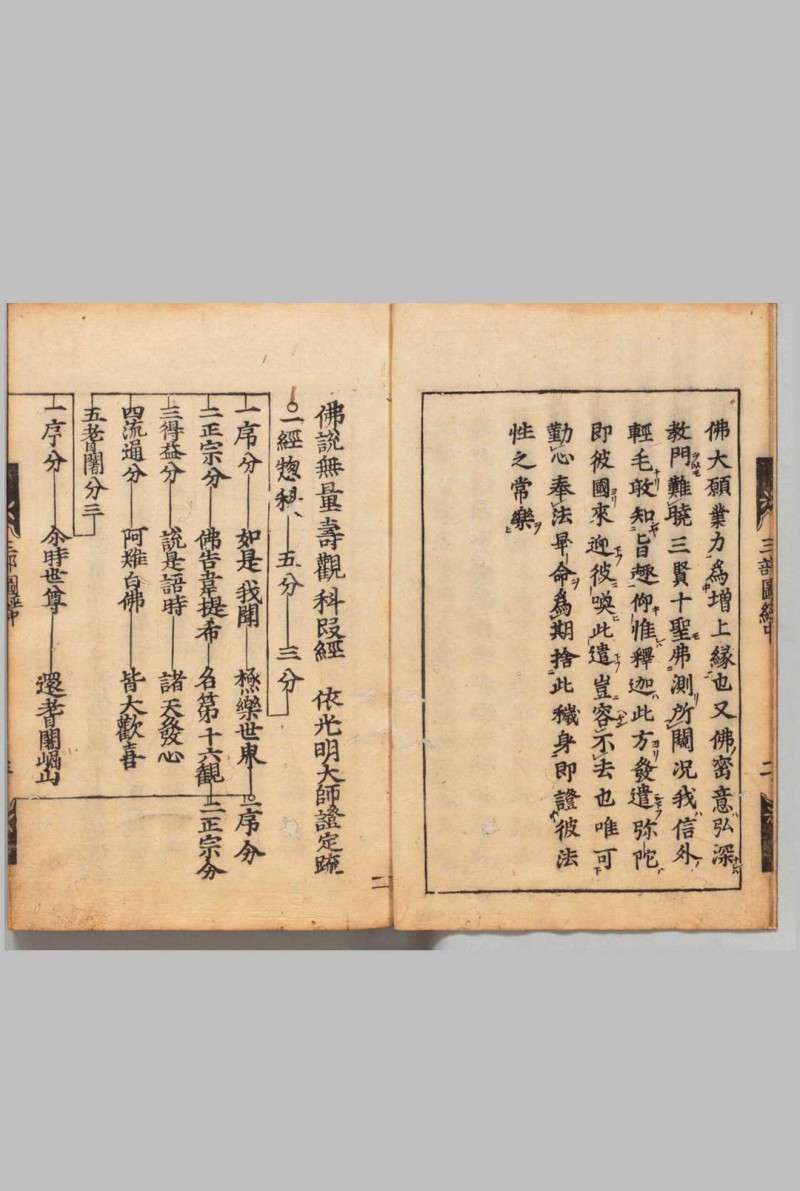 佛大願業力為增上緣也又佛密意弘深
教門難曉三賢十聖弗測所闚況我信外
輕毛敢知旨趣仰惟釋迦此方發遣弥陀
即彼國來迎彼喚此遣豈容不去也唯可
勤心奉法畢命為期捨此穢身即證彼法
性之常樂
三部圖經中
二
佛說無量壽觀科段經 依光明大師證定疏
一經惣科 五分 三分
一序分 如是我聞 極樂世東 一序分
二正宗分 佛告韋提希 名第十六觀 二正宗分
三得益分 說是語時 諸天發心
四流通分 阿難白佛 皆大歡喜
五耆闍分三
一序分 尒時世尊 還耆闍崛山